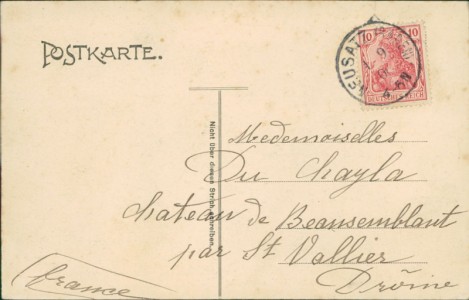 POSTKARTE.
10 10
DEUTSCHES REICH
Nicht über diesen Strich schreiben.
Medemoiselles
Du Chayla
Chateau de Beausemblant
par St Vallier
Drôme
France